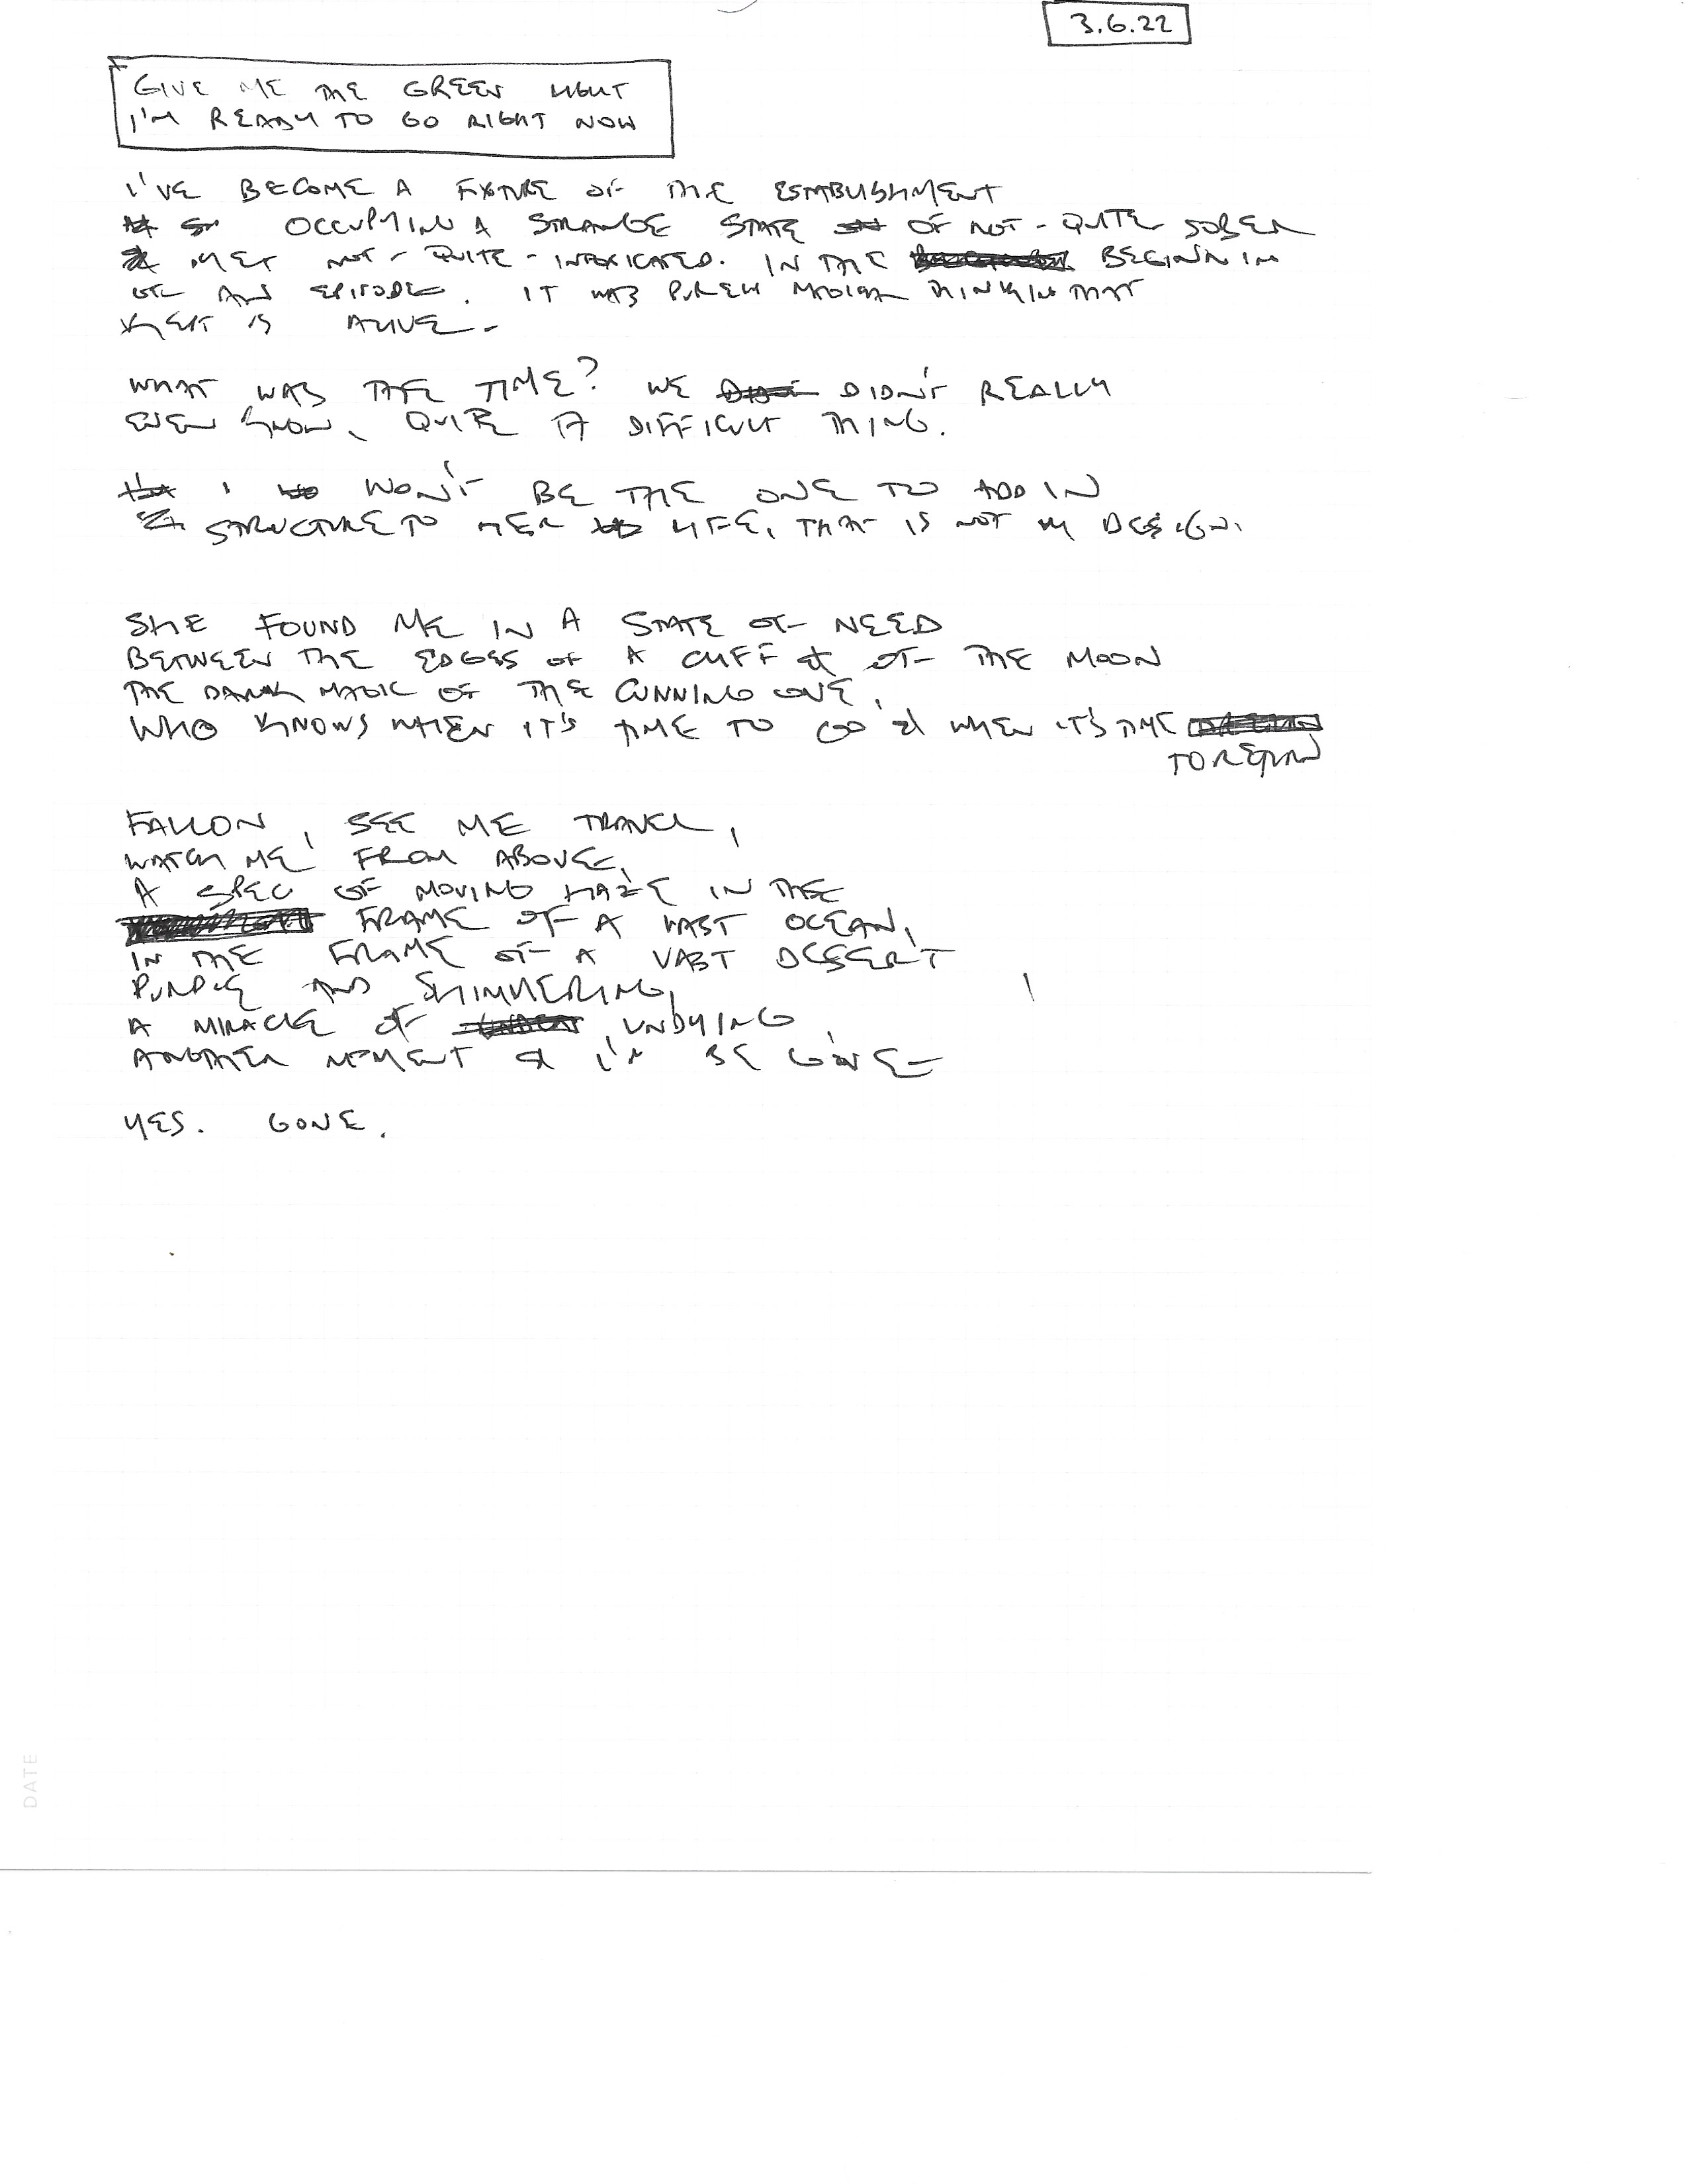 3.6.22
GIVE ME THE GREEN LIGHT
I'M READY TO GO RIGHT NOW
I'VE BECOME A FIXTURE OF THE ESTABLISHMENT
OCCUPYING A STRANGE STATE OF NOT-QUITE SOBER
NOT-QUITE-INTOXICATED. IN THE BEGINNING
OF AN EPISODE. IT WAS PURELY MAGICAL THINKING THAT
KEPT IS ALIVE-
WHAT WAS THE TIME? WE DIDN'T REALLY
EVEN KNOW, QUITE A DIFFICULT THING.
I WON'T BE THE ONE TO ADD IN
STRUCTURE TO HER LIFE, THAT IS NOT MY DESIGN.
SHE FOUND ME IN A STATE OF NEED
BETWEEN THE EDGES OF A CLIFF & OF THE MOON
THE DARK MAGIC OF THE CUNNING ONE,
WHO KNOWS WHEN IT'S TIME TO GO & WHEN IT'S TIME
TO RETURN
FALLON, SEE ME TRAVEL,
WATCH ME FROM ABOVE,
A SPEC OF MOVING HAZE IN THE
FRAME OF A VAST OCEAN,
IN THE FRAME OF A VAST DESSERT
PURPLE AND SHIMMERING,
A MIRACLE OF UNDYING,
ANOTHER MOMENT & I'LL BE GONE-
YES. GONE.
DATE